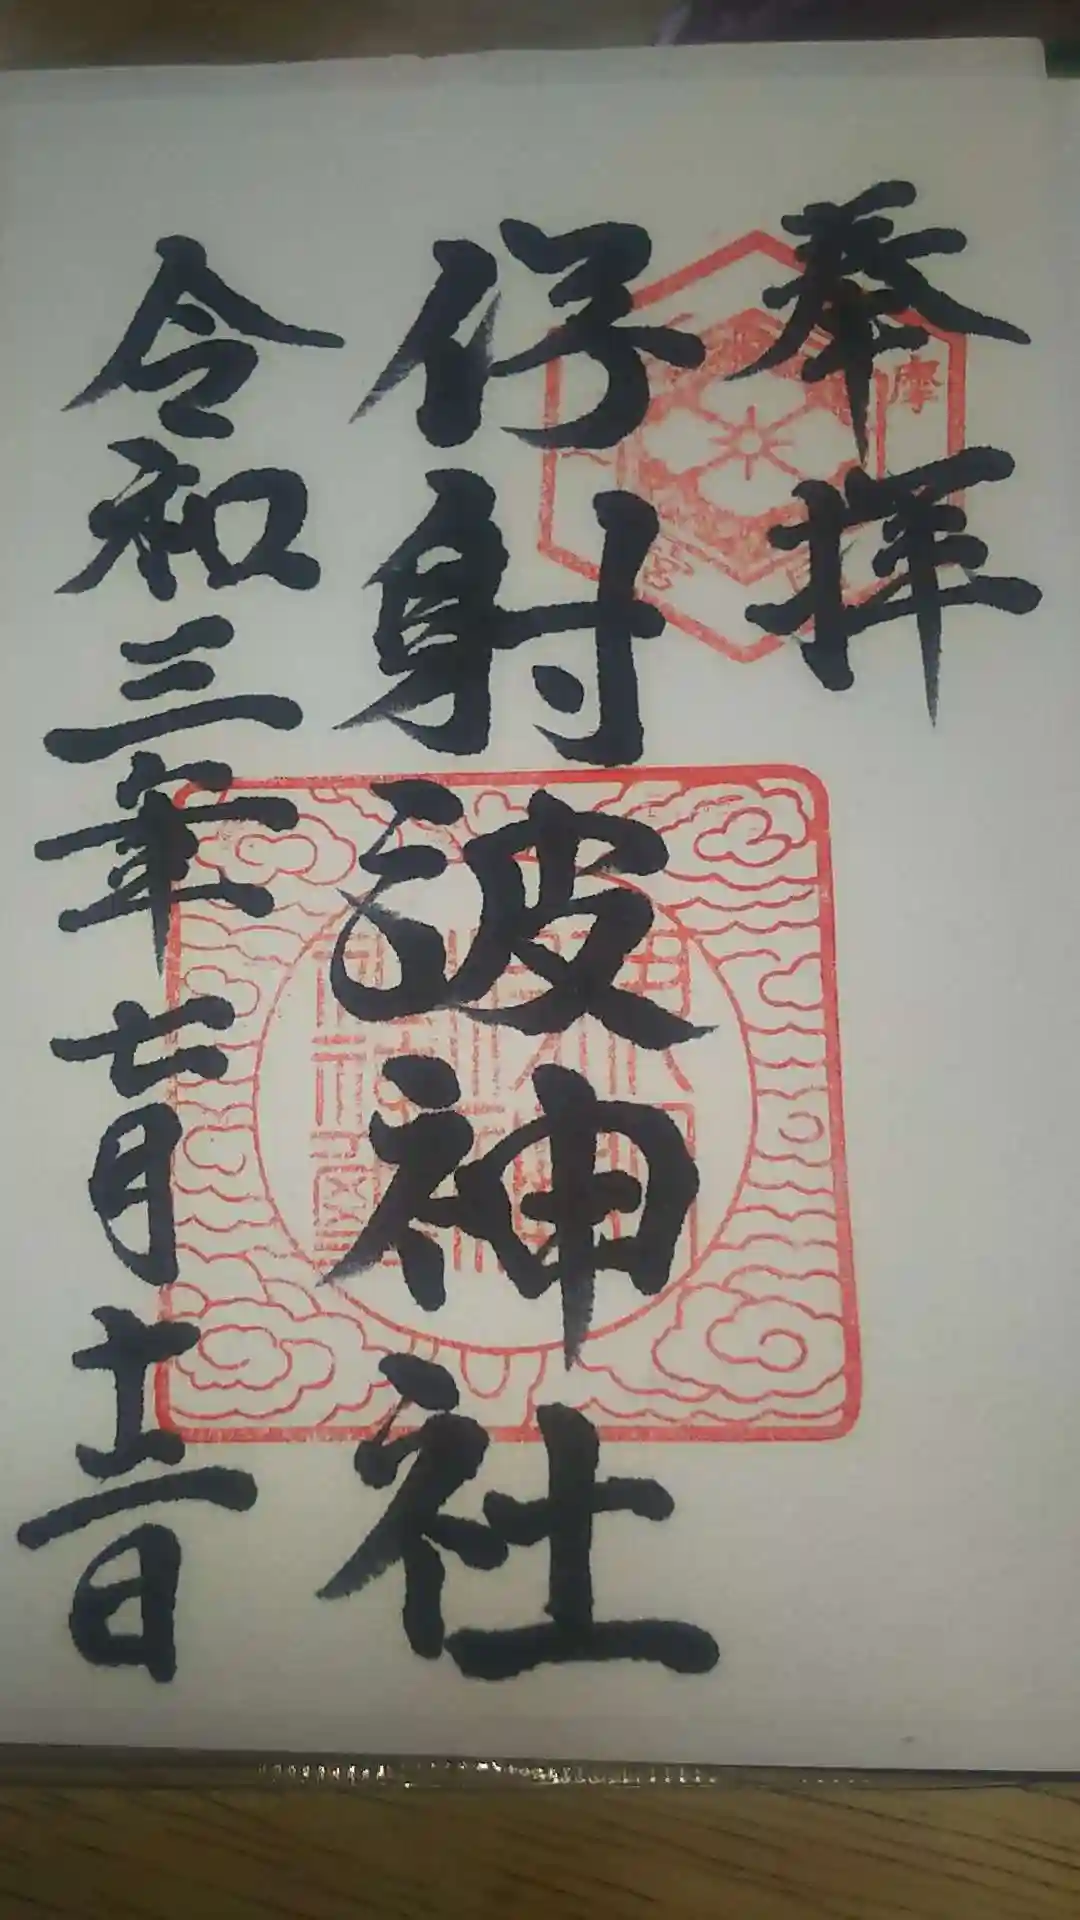 奉拝
摩
伊射波神社
令和三年七月十二日